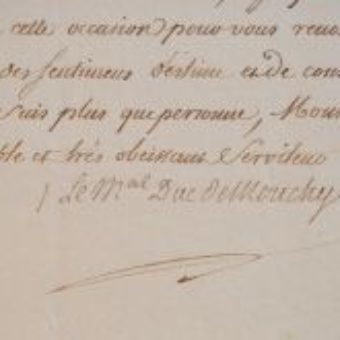 cette occasion pour vous renou
des sentimens d'estime et de cons
suis plus que personne, Mons
ble et très obeissant Serviteur
Le M.al Duc de Mouchy